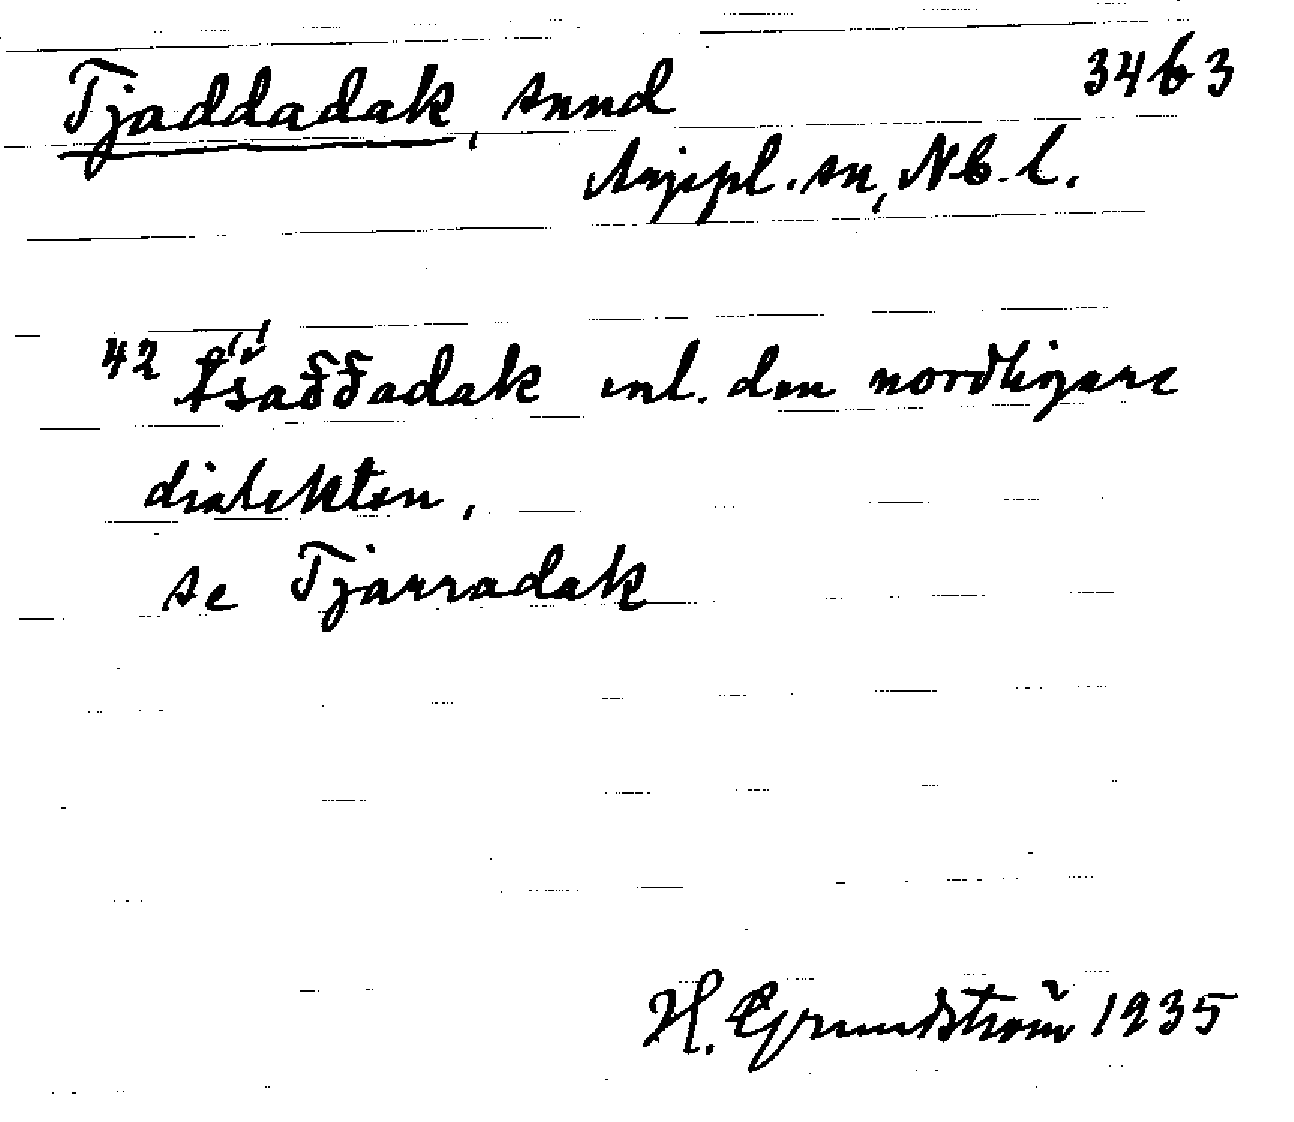 Tjaddadak, sund 3463
Arjepl. sn, Nb. l.
42 tsaδδadak enl. den nordligare
dialekten,
se Tjarradak
H. Grundström 1935